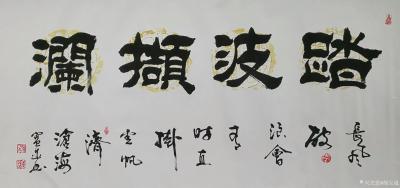 踏波擷瀾
長風
破
浪會
有
時直
掛
雲帆
濟
滄海